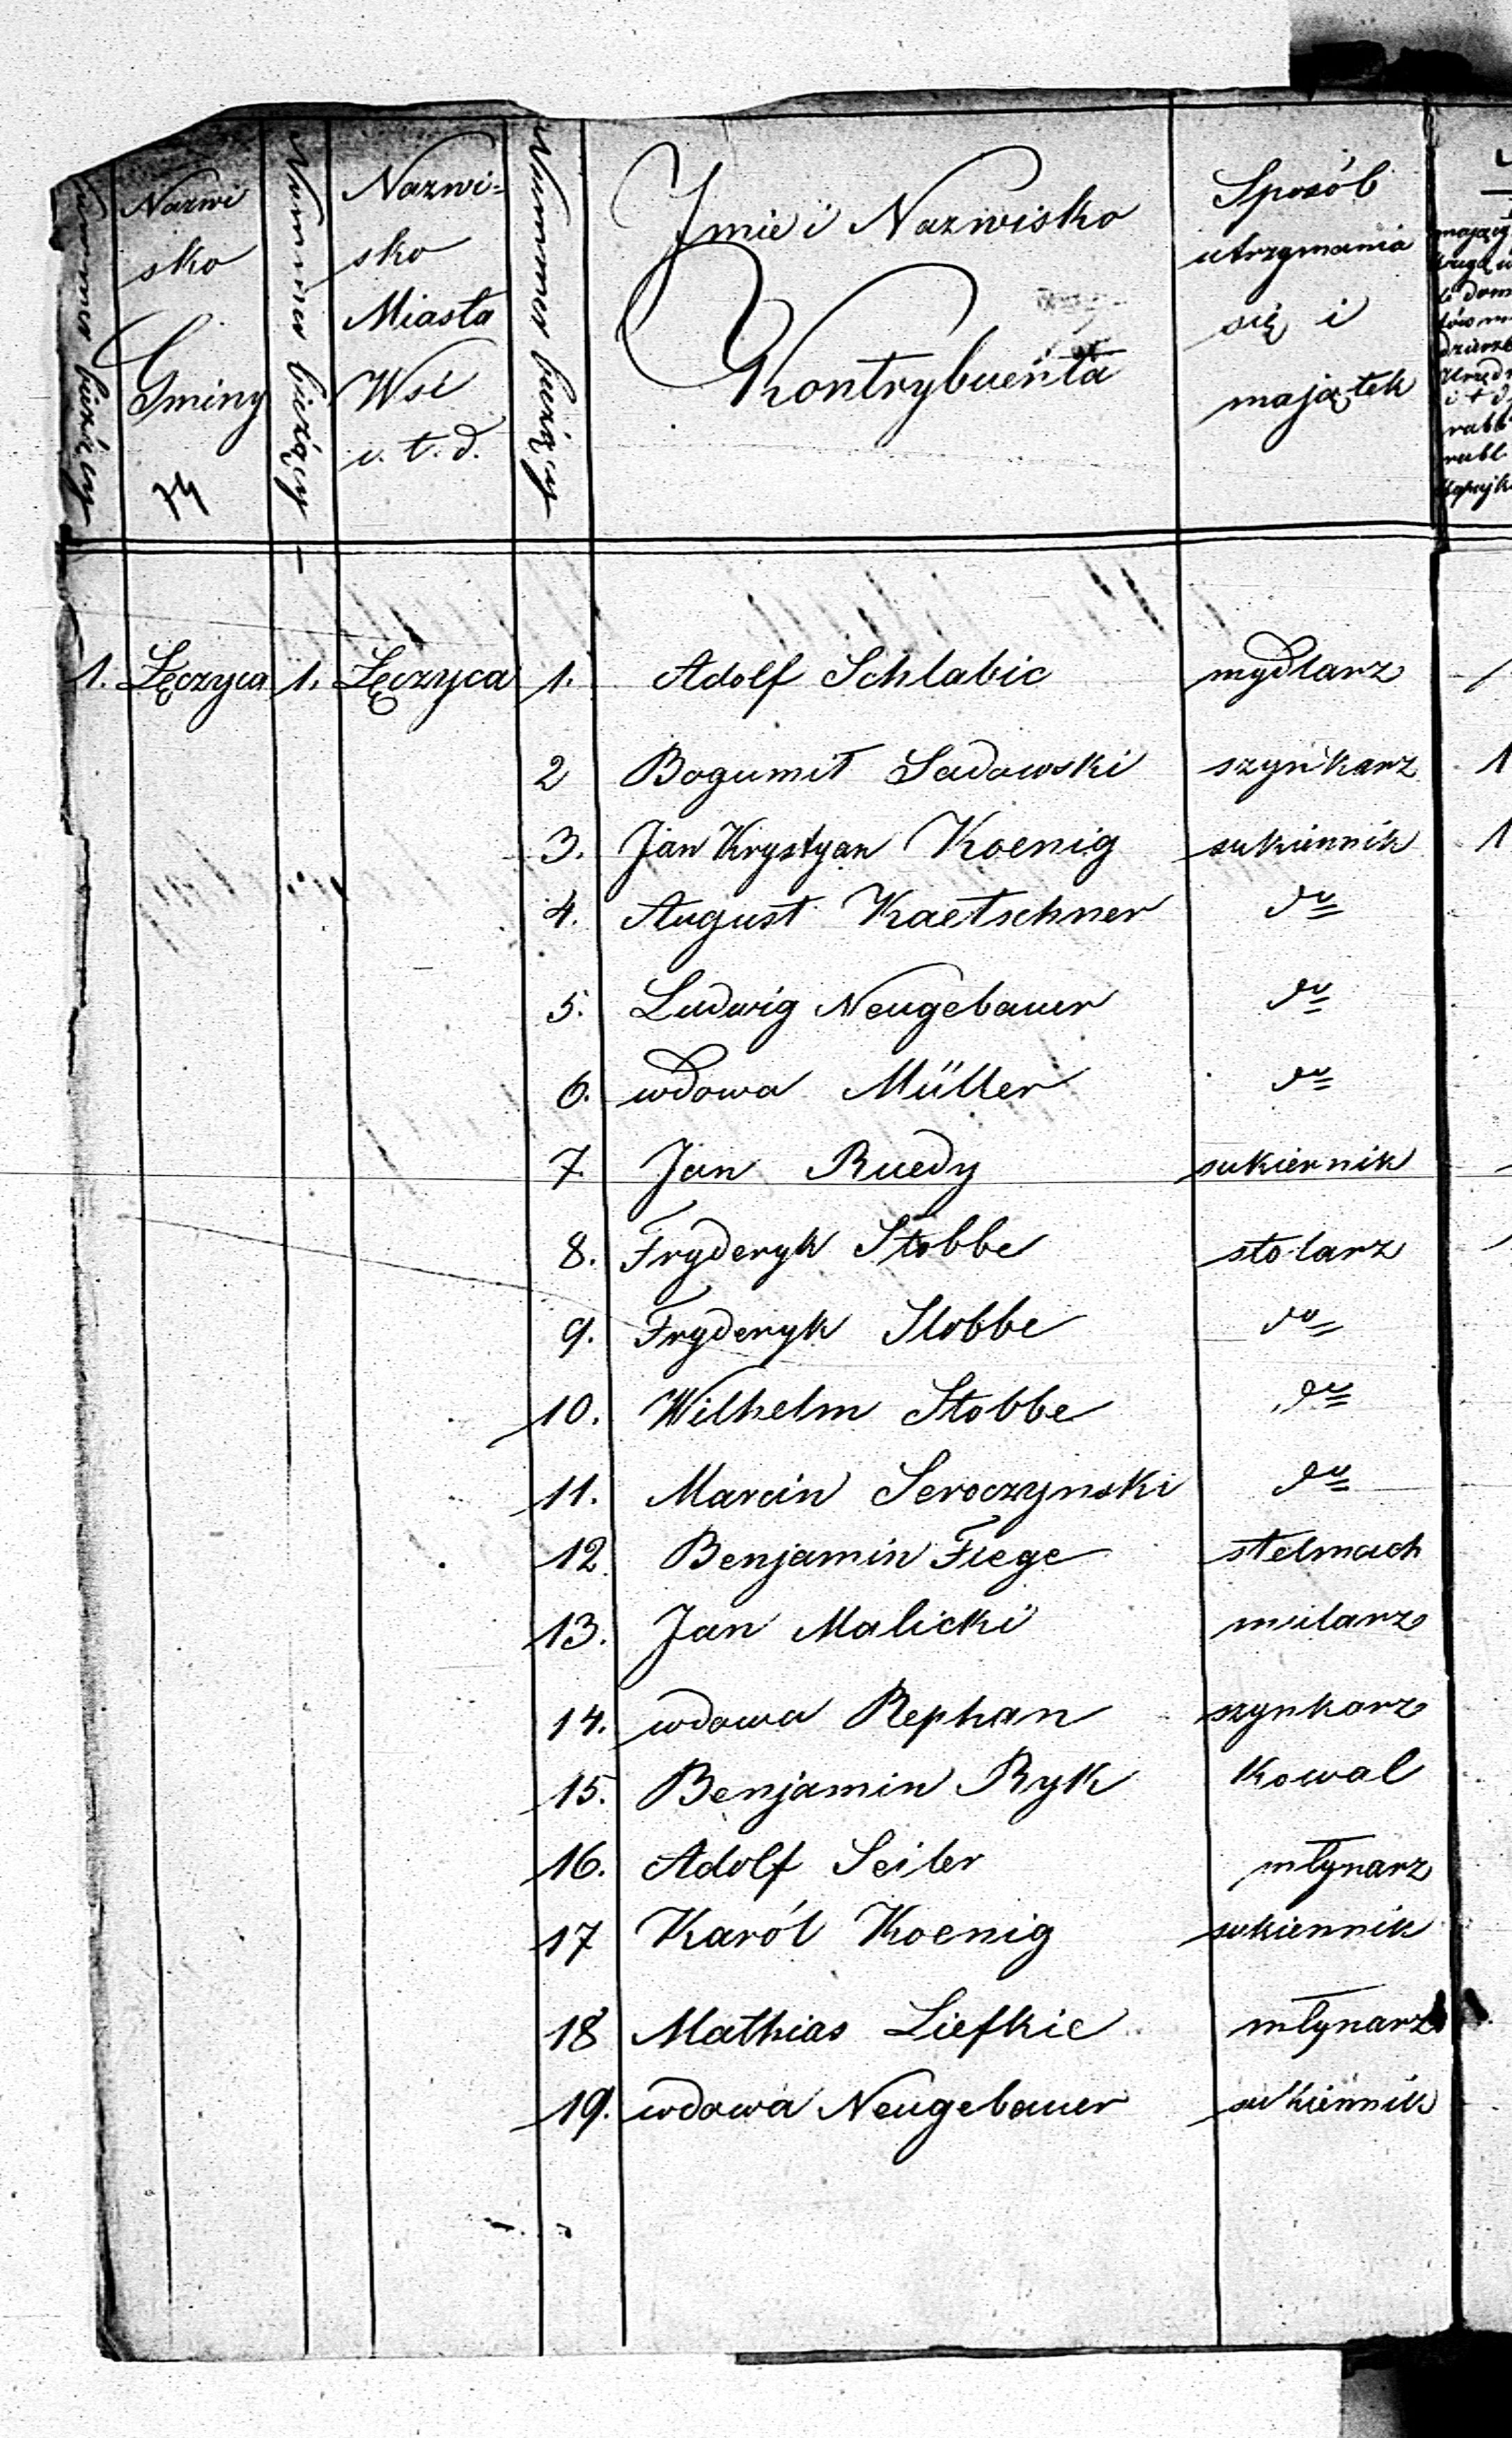 Numer bieżący
Nazwi
sko
Gminy
Numer bieżący
Nazwi=
sko
Miasta
Wsi
i. t. d.
Numer bieżący
Imie i Nazwisko
Kontrybuenta
Sposób
utrzymania
się i
majątek
1. Łęczyca 1. Łęczyca 1. Adolf Schlabic mydlarz
2 Bogumił Sadowski szynkarz 1
3. Jan Krystyan Koenig sukiennik 1
4. August Kaetschner do
5. Ludwig Neugebauer do
6. wdowa Müller do
7. Jan Ruedy cukiernik
8. Fryderyk Stobbe stolarz
9. Fryderyk Stobbe do
10. Wilhelm Stobbe do
11. Marcin Seroczynski do
12. Benjamin Fiege stelmach
13. Jan Malicki mularz
14. wdowa Rephan szynkarz
15. Benjamin Ryk Kowal
16. Adolf Seiler młynarz
17 Karól Koenig sukiennik
18 Mathias Liefkie młynarz
19. wdowa Neugebauer sukiennik